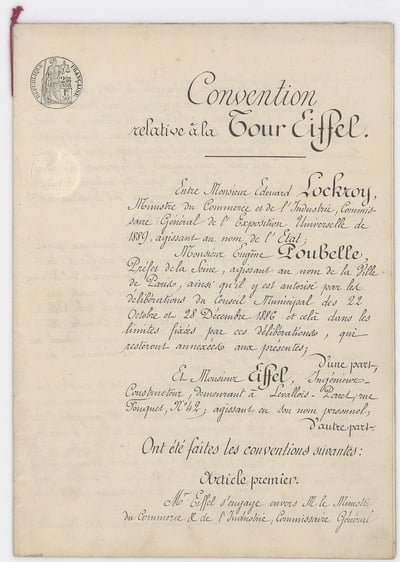 RÉPUBLIQUE FRANÇAISE
Convention
relative à la Tour Eiffel.
Entre Monsieur Edouard Lockroy,
Ministre du Commerce et de l'Industrie, Commis-
saire Général de l'Exposition Universelle de
1889, agissant au nom de l'Etat;
Monsieur Eugène Poubelle,
Préfet de la Seine, agissant au nom de la Ville
de Paris, ainsi qu'il y est autorisé par les
délibérations du Conseil Municipal des 22
Octobre et 28 Décembre 1886 et cela dans les
limites fixées par ces délibérations, qui
resteront annexées aux présentes;
D'une part,
Et Monsieur Eiffel, Ingénieur-
Constructeur, demeurant à Levallois-Perret, rue
Fouquet, N° 42; agissant en son nom personnel,
D'autre part.
Ont été faites les conventions suivantes:
Article premier.
Mr Eiffel s'engage envers M. le Ministre
du Commerce & de l'Industrie, Commissaire Général